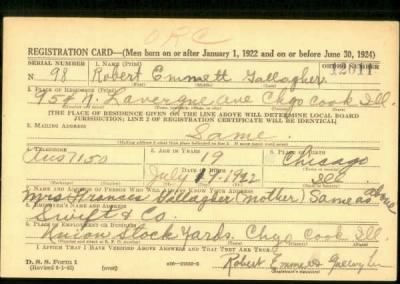 O R C
REGISTRATION CARD—(Men born on or after January 1, 1922 and on or before June 30, 1924)
SERIAL NUMBER 1. NAME (Print) ORDER NUMBER
N 98 Robert Emmett Gallagher 12011
2. PLACE OF RESIDENCE (Print)
954 N. Lavergne Ave Chgo Cook Ill.
[THE PLACE OF RESIDENCE GIVEN ON THE LINE ABOVE WILL DETERMINE LOCAL BOARD
JURISDICTION; LINE 2 OF REGISTRATION CERTIFICATE WILL BE IDENTICAL]
3. MAILING ADDRESS
Same.
4. TELEPHONE 5. AGE IN YEARS 6. PLACE OF BIRTH
Aus 7150 19 Chicago
DATE OF BIRTH
July 1922 Ill
7. NAME AND ADDRESS OF PERSON WHO WILL ALWAYS KNOW YOUR ADDRESS
Mrs Frances Gallagher (mother) Same as above
8. EMPLOYER'S NAME AND ADDRESS
Swift & Co.
9. PLACE OF EMPLOYMENT OR BUSINESS
Union Stock Yards. Chgo Cook Ill.
I AFFIRM THAT I HAVE VERIFIED ABOVE ANSWERS AND THAT THEY ARE TRUE.
D. S. S. Form 1
Robert Emmett Gallagher